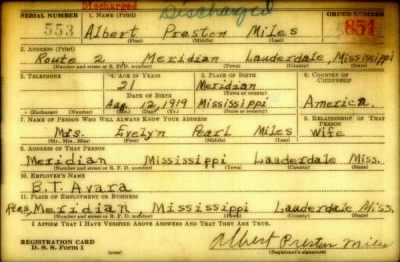 Discharged Discharged
SERIAL NUMBER 1. NAME (Print) ORDER NUMBER
553 Albert Preston Miles 851
(First) (Middle) (Last)
2. ADDRESS (Print)
Route 2 Meridian Lauderdale, Mississippi
(Number and street or R. F. D. number) (Town) (County) (State)
3. TELEPHONE 4. AGE IN YEARS 5. PLACE OF BIRTH 6. COUNTRY OF CITIZENSHIP
21 Meridian
DATE OF BIRTH (Town or county)
Aug 12, 1919 Mississippi America.
(Exchange) (Number) (Mo.) (Day) (Yr.) (State or country)
7. NAME OF PERSON WHO WILL ALWAYS KNOW YOUR ADDRESS 8. RELATIONSHIP OF THAT PERSON
Mrs. Evelyn Pearl Miles Wife
(Mr., Mrs., Miss) (First) (Middle) (Last)
9. ADDRESS OF THAT PERSON
Meridian Mississippi Lauderdale Miss.
(Number and street or R. F. D. number) (Town) (County) (State)
10. EMPLOYER'S NAME
B.T. Avara
11. PLACE OF EMPLOYMENT OR BUSINESS
Meridian Mississippi Lauderdale Miss.
(Number and street or R. F. D. number) (Town) (County) (State)
I AFFIRM THAT I HAVE VERIFIED ABOVE ANSWERS AND THAT THEY ARE TRUE.
REGISTRATION CARD
D. S. S. Form 1 Albert Preston Miles
(Registrant's signature)